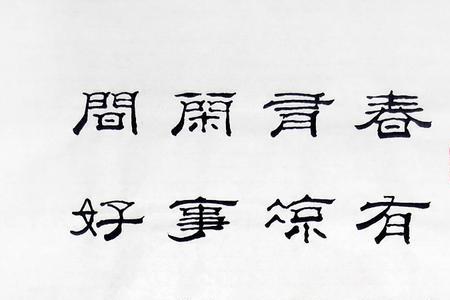 春有
有涼
閑事
間好